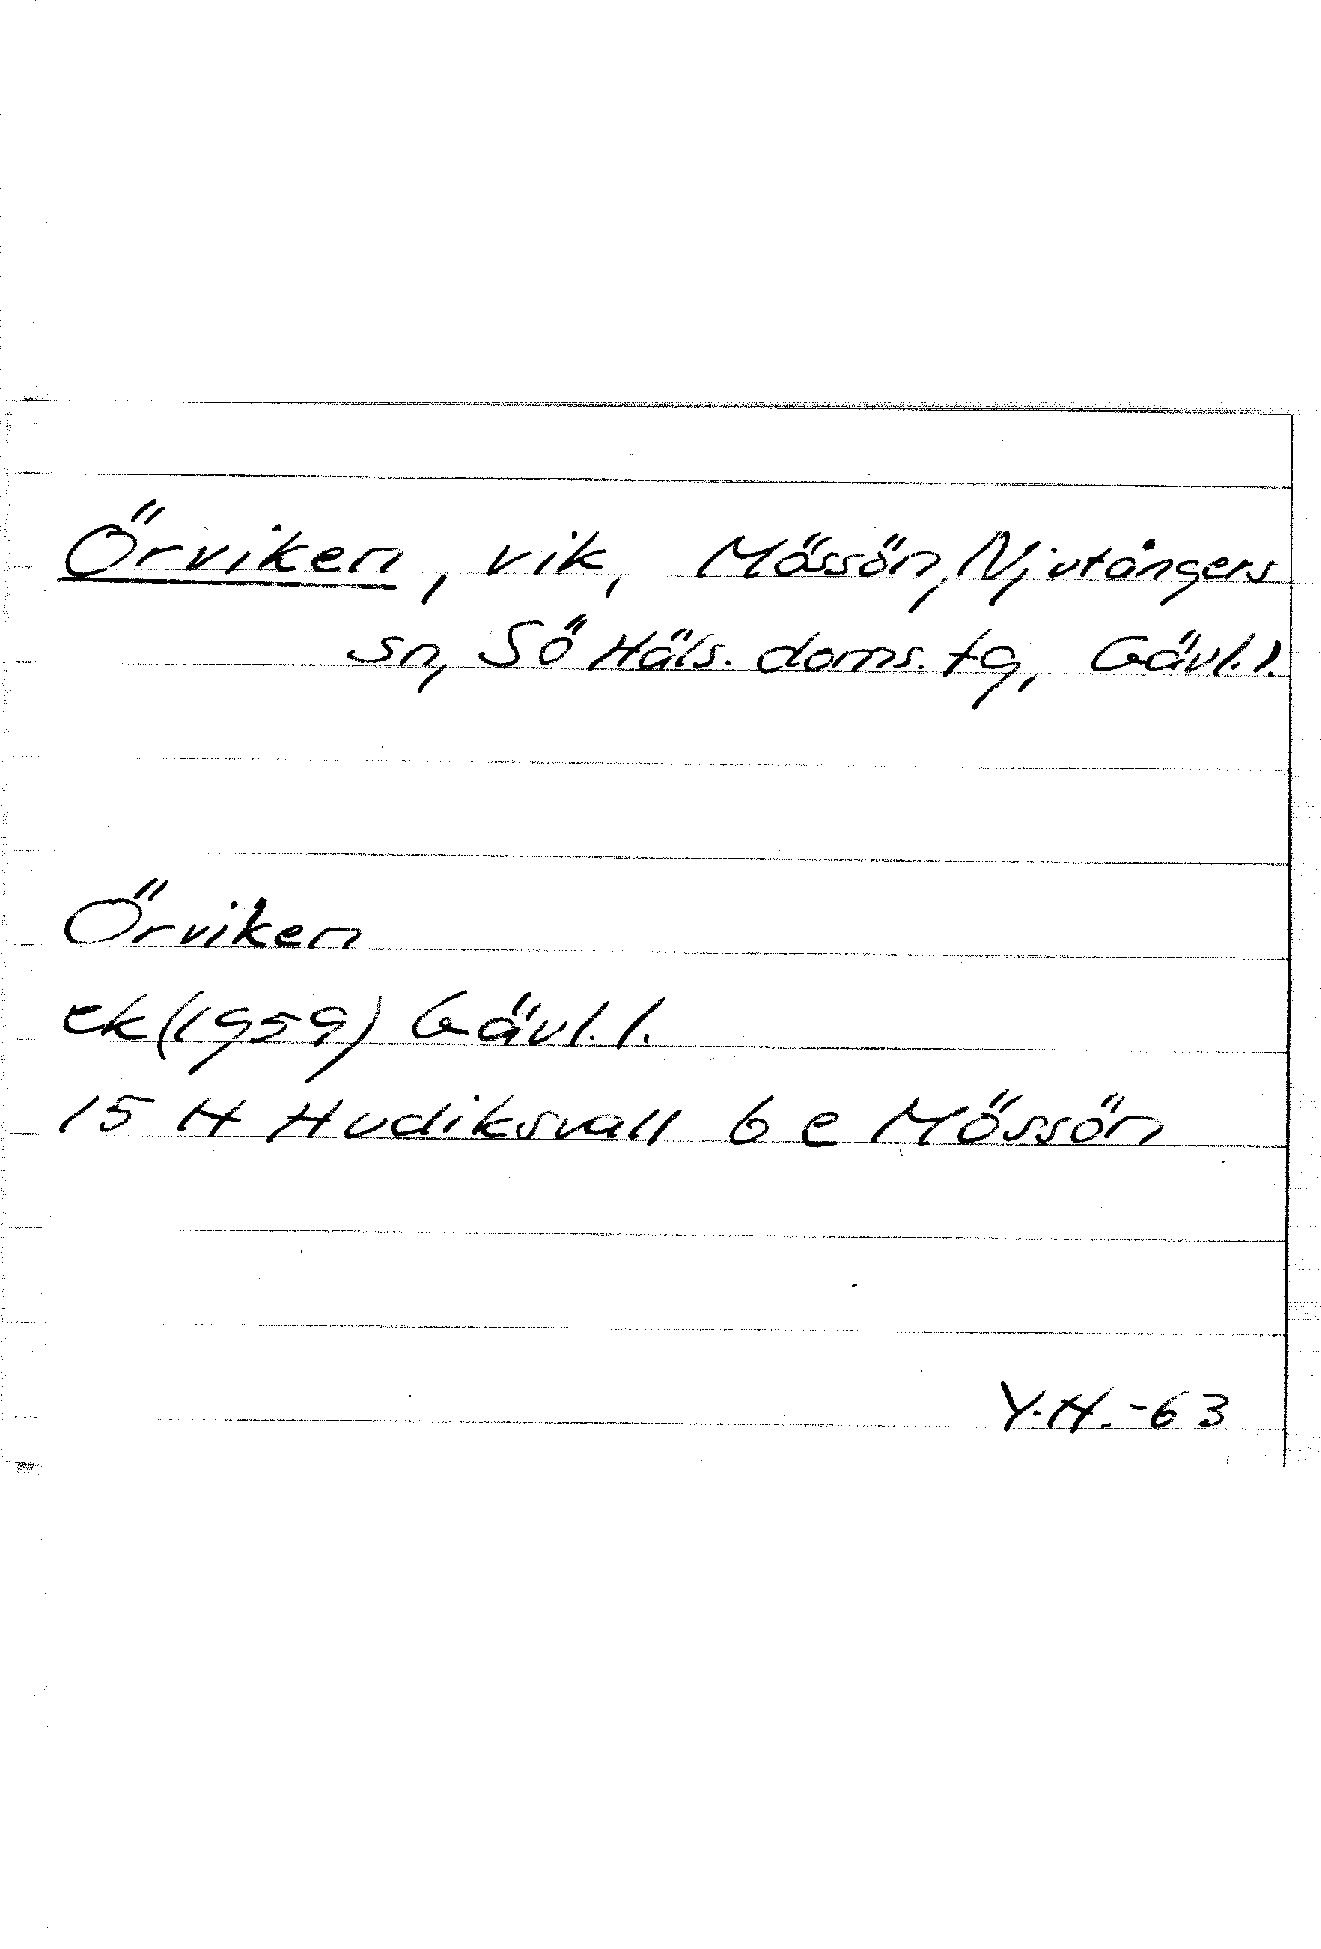 Örviken, vik, Mössön, Njutångers
sn, Sö Häls. doms. tg, Gävl. l.
Örviken
ek (1959) Gävl. l.
15 H Hudiksvall 6 e Mössön
Y.H. -63